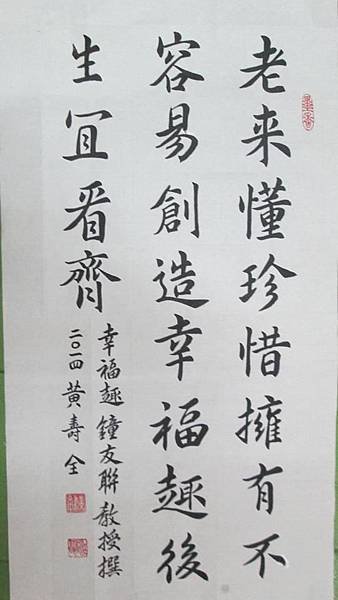 老来懂珍惜擁有不
容易創造幸福趣後
生宜看齊
幸福趣鐘友聯教授撰
二〇一四黃壽全